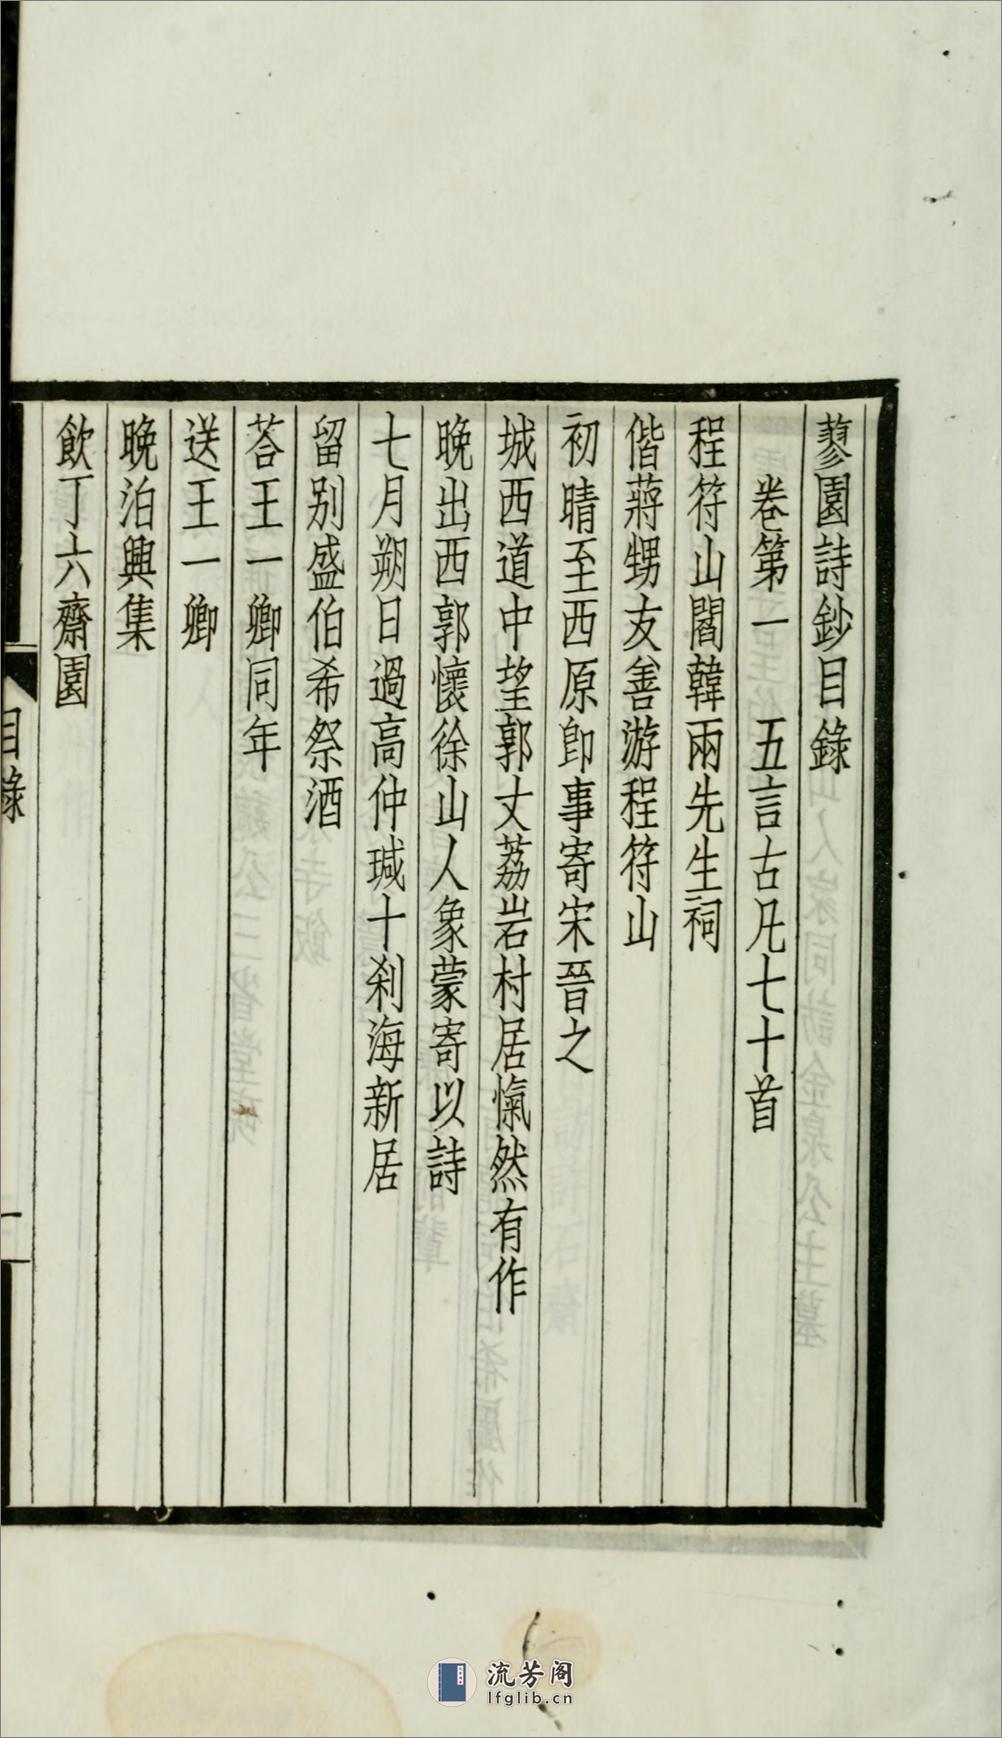 蓼園詩鈔目錄
卷第一　五言古凡七十首
程符山閻韓兩先生祠
偕蔣甥友善游程符山
初晴至西原卽事寄宋晉之
城西道中望郭丈荔岩村居愾然有作
晚出西郭懷徐山人象蒙寄以詩
七月朔日過高仲瑊十刹海新居
留别盛伯希祭酒
荅王一卿同年
送王一卿
晚泊興集
飲丁六齋園
目錄
一
流芳阁
lfglib.cn